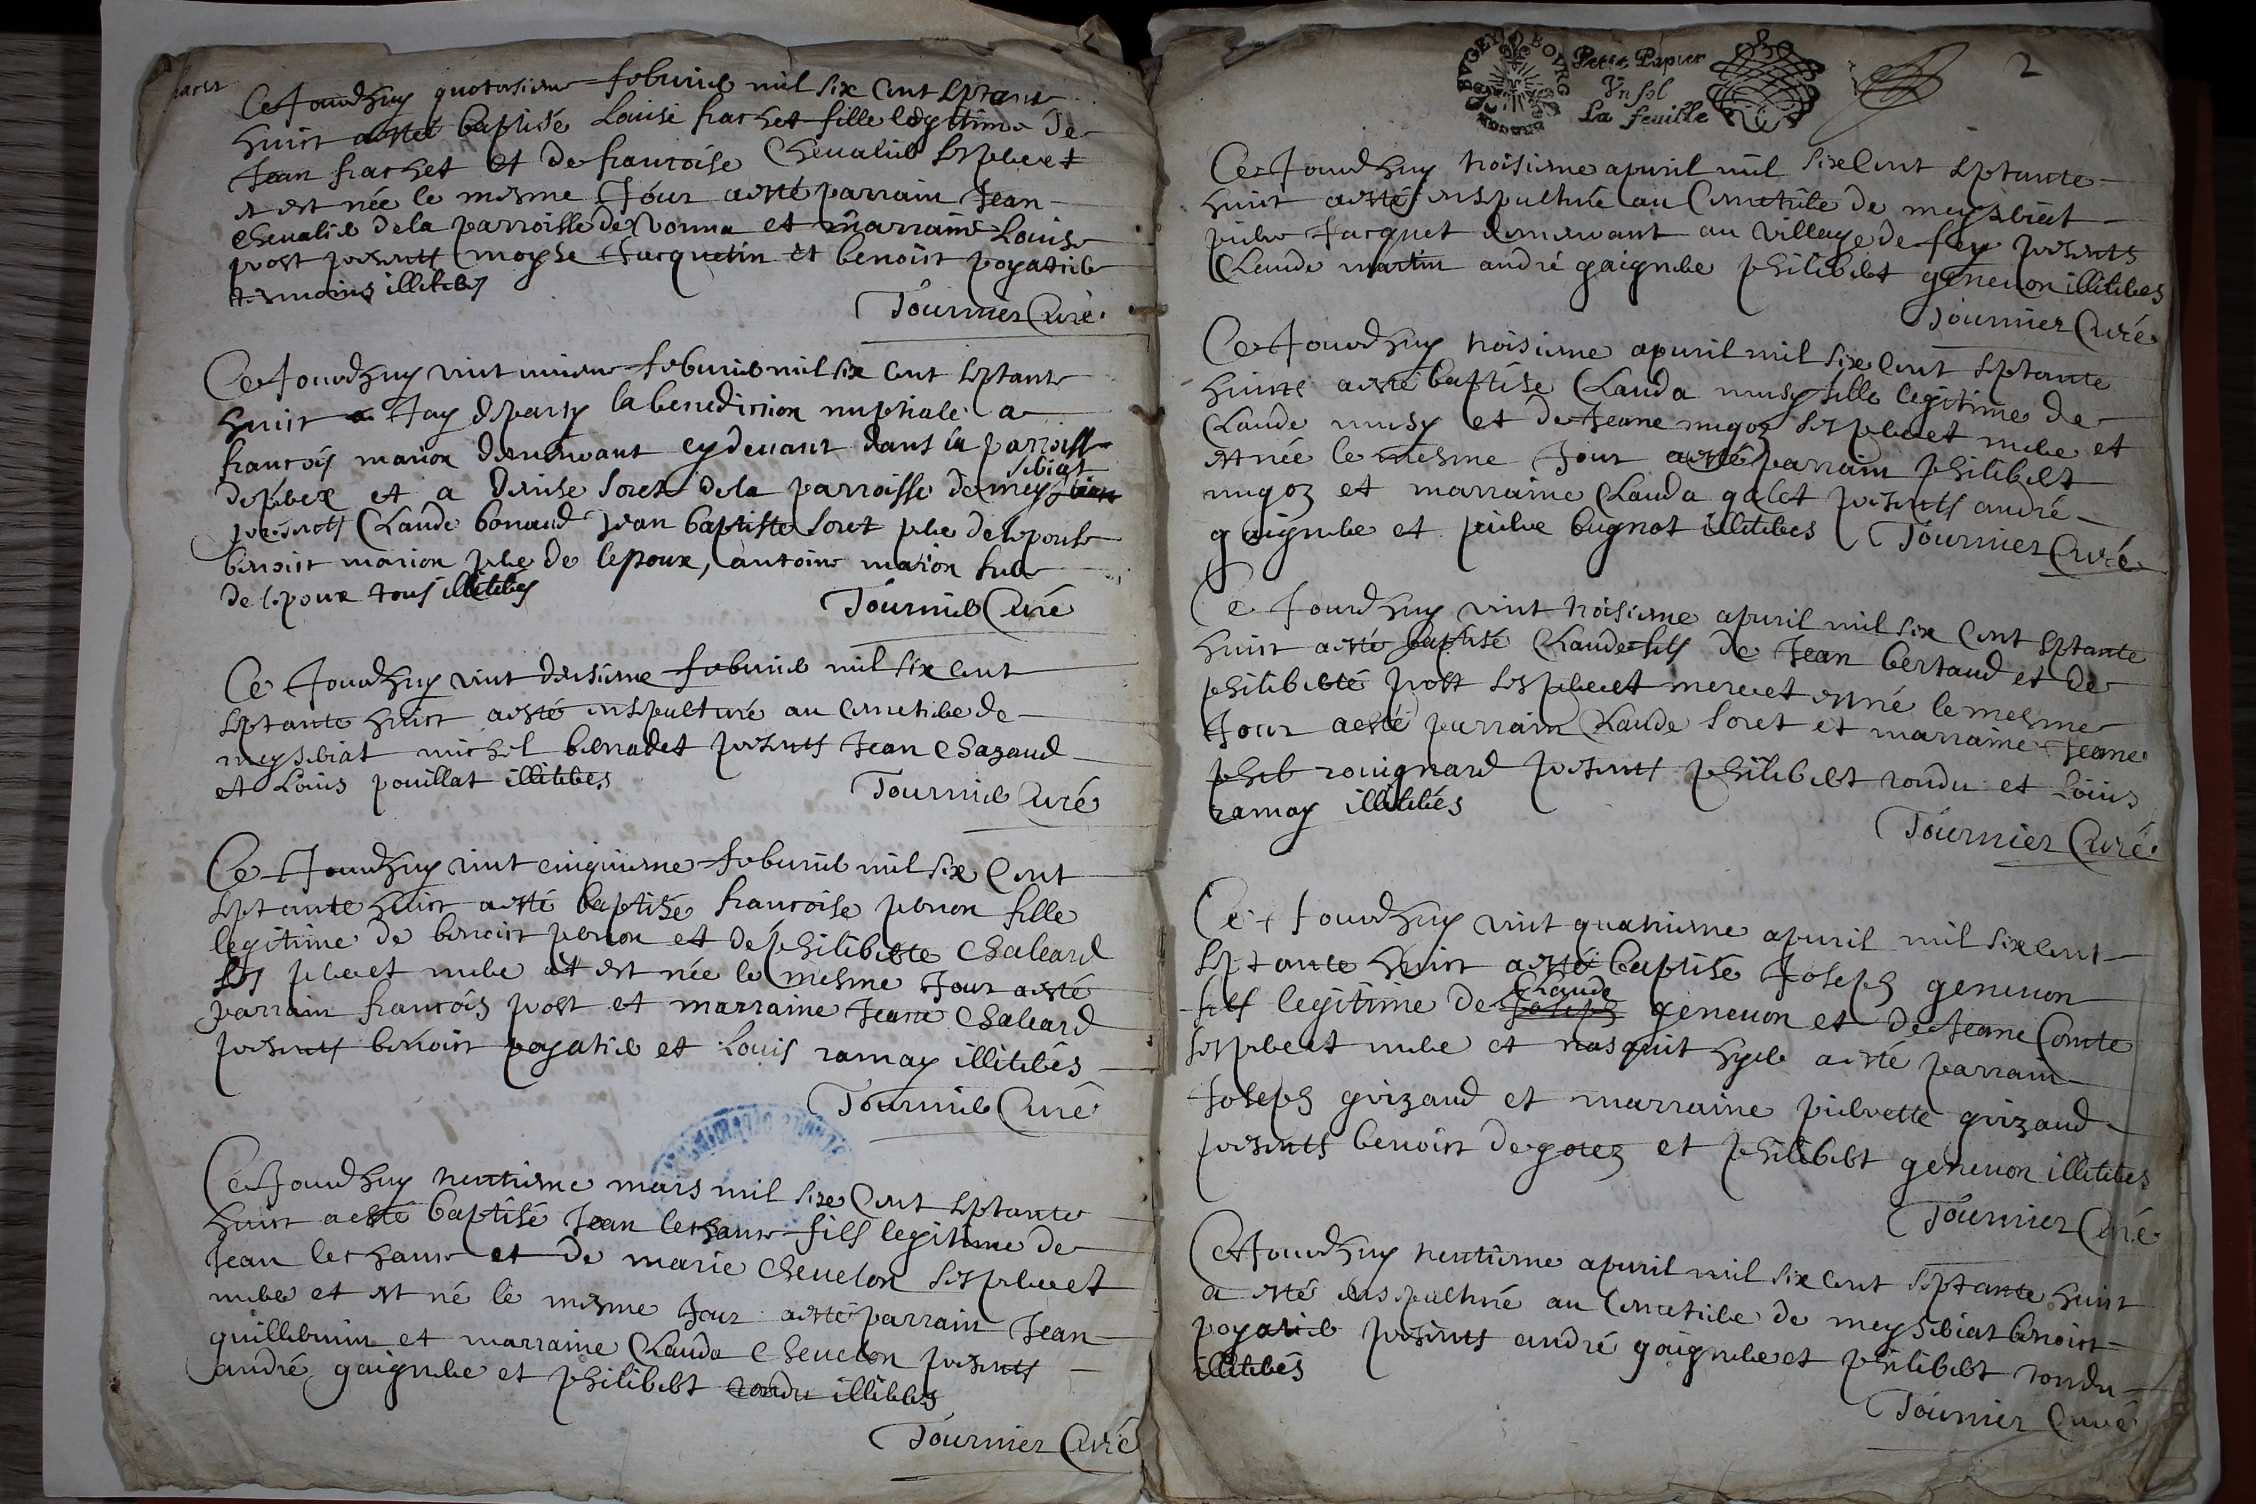 Ce Jourdhuy quatorsieme febvrier mil six cent septante
huict a esté baptisé Louise frachet fille legitime de
Jean frachet et de francoise Chevalier ses pere et
et est née le mesme Jour a esté parrain Jean
Chevalier de la parroisse de Vonna et marraine Louise
prost presents moyse Jacquetin et benoist poyatier
temoins illiteres
Tournier Curé
Ce Jourdhuy vint unieme febvrier mil six cent septante
huict Jay desparty la benediction nuptiale a
francois marion demeurant cy devant dans la parroisse
et a denise soret de la parroisse de meyseriat
presents Claude bonaud Jean baptiste soret pere de lepouse
benoist marion pere de lepoux, antoine marion frere
de lepoux tous illiteres
Tournier Curé
Ce Jourdhuy vint deusieme febvrier mil six cent
septante huict a esté ensepulturé au cimetiere de
meyseriat michel bernadet presents Jean Chazaud
et Louis pouillat illiteres
Tournier Curé
Ce Jourdhuy vint cinquieme febvrier mil six cent
septante huict a esté baptisé francoise perron fille
legitime de benoist perron et de philiberte Chaleard
ses pere et mere et est née le mesme Jour a esté
parrain francois prost et marraine Jeane Chaleard
presents benoist poyatier et Louis ramay illiteres
Tournier Curé
Ce Jourdhuy trentieme mars mil six cent septante
huict a esté baptisé Jean lethanne fils legitime de
Jean lethanne et de marie Chevelon ses pere et
mere et est né le mesme Jour a esté parrain Jean
guillermin et marraine Clauda Chevelon presents
andré gaignere et philibert rondu illiteres
Tournier Curé
BVGEY BOVRG
Petit Papier
Vn sol
La feuille
2
Ce Jourdhuy troisieme apvril mil six cent septante
huict a esté ensepulturé au Cimetiere de meyseriat
pierre Jacquet demeurant au village de presents
Claude martin andré gaignere philibert genevon illiteres
Tournier Curé
Ce Jourdhuy troisieme apvril mil six cent septante
huict a esté baptisé Clauda musy fille legitime de
Claude musy et de Jeane nugoz ses pere et mere et
est née le mesme Jour a esté parrain philibert
nugoz et marraine Clauda galet presents andré
gaignere et pierre bugnot illiteres Tournier Curé
Ce Jourdhuy vint troisieme apvril mil six cent septante
huict a esté baptisé Claude fils de Jean bertaud et de
philiberte prost ses pere et mere et est né le mesme
Jour a esté parrain Claude soret et marraine Jeane
rouignard presents philibert rondu et Loüis
ramay illiteres
Tournier Curé
Ce Jourdhuy vint quatrieme apvril mil six cent
septante huict a esté baptisé Joseph genevon
fils legitime de Claude genevon et de Jeane Comte
ses pere et mere et nasquit hyer a esté parrain
Joseph guizaud et marraine pierrette guizaud
presents benoist degotez et philibert genevon illiteres
Tournier Curé
Ce Jourdhuy trentieme apvril mil six cent septante huict
a esté ensepulturé au Cimetiere de meyseriat benoist
poyatier presents andré gaignere et philibert rondu
illiteres
Tournier Curé